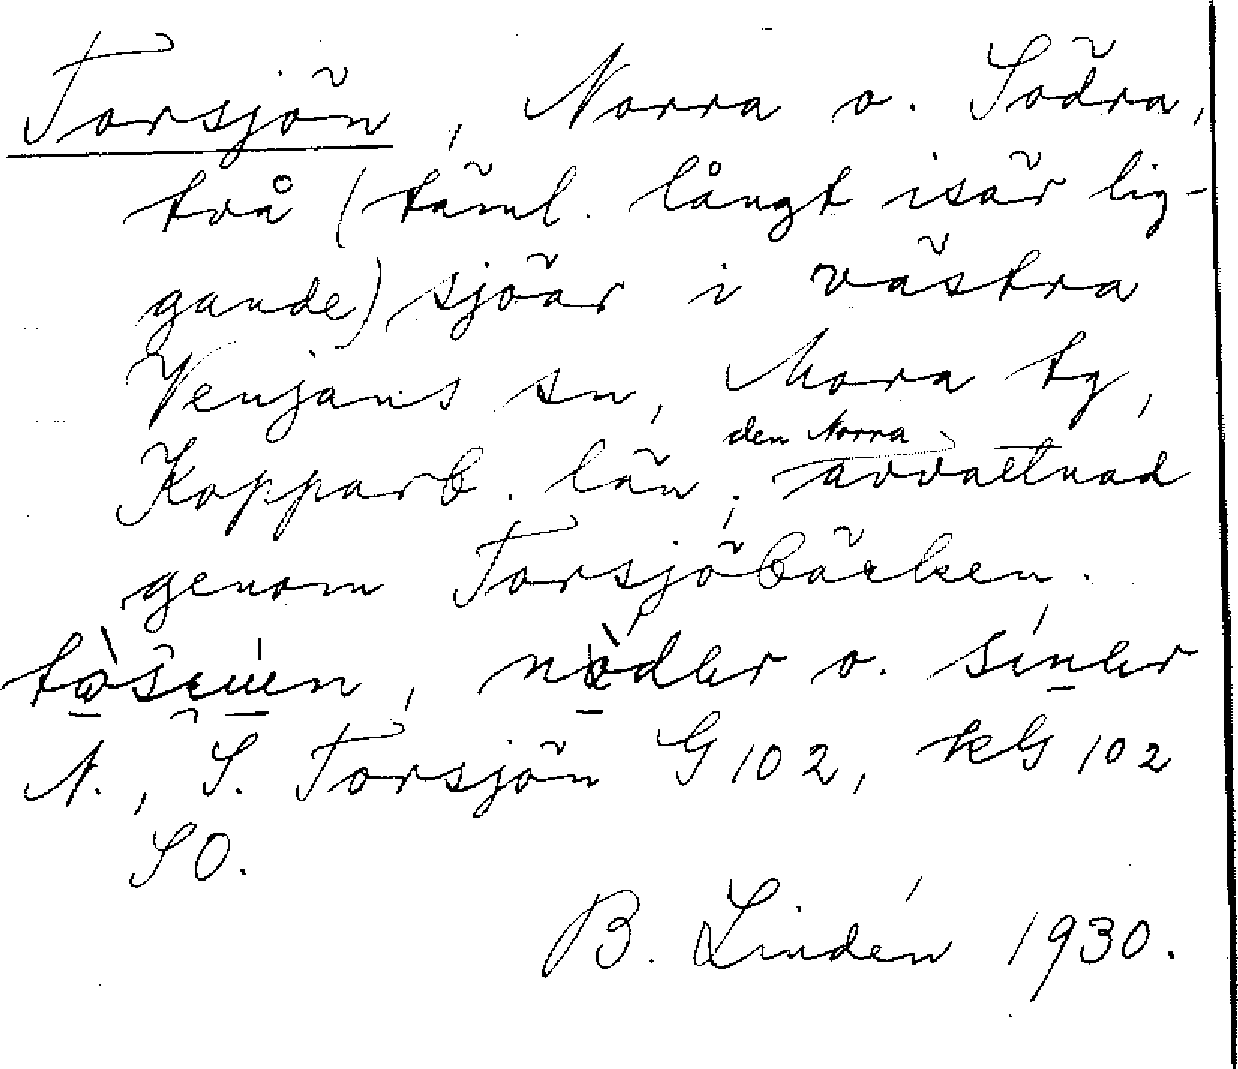 Torsjön, Norra o. Södra,
två (täml. långt isär lig-
gande) sjöar i västra
Venjans sn, Mora tg,
den Norra
Kopparb. län; avvattnad
genom Torsjöbäcken.
o. 
N., S. Torsjön G 102, kG 102
SO.
B. Lindén 1930.